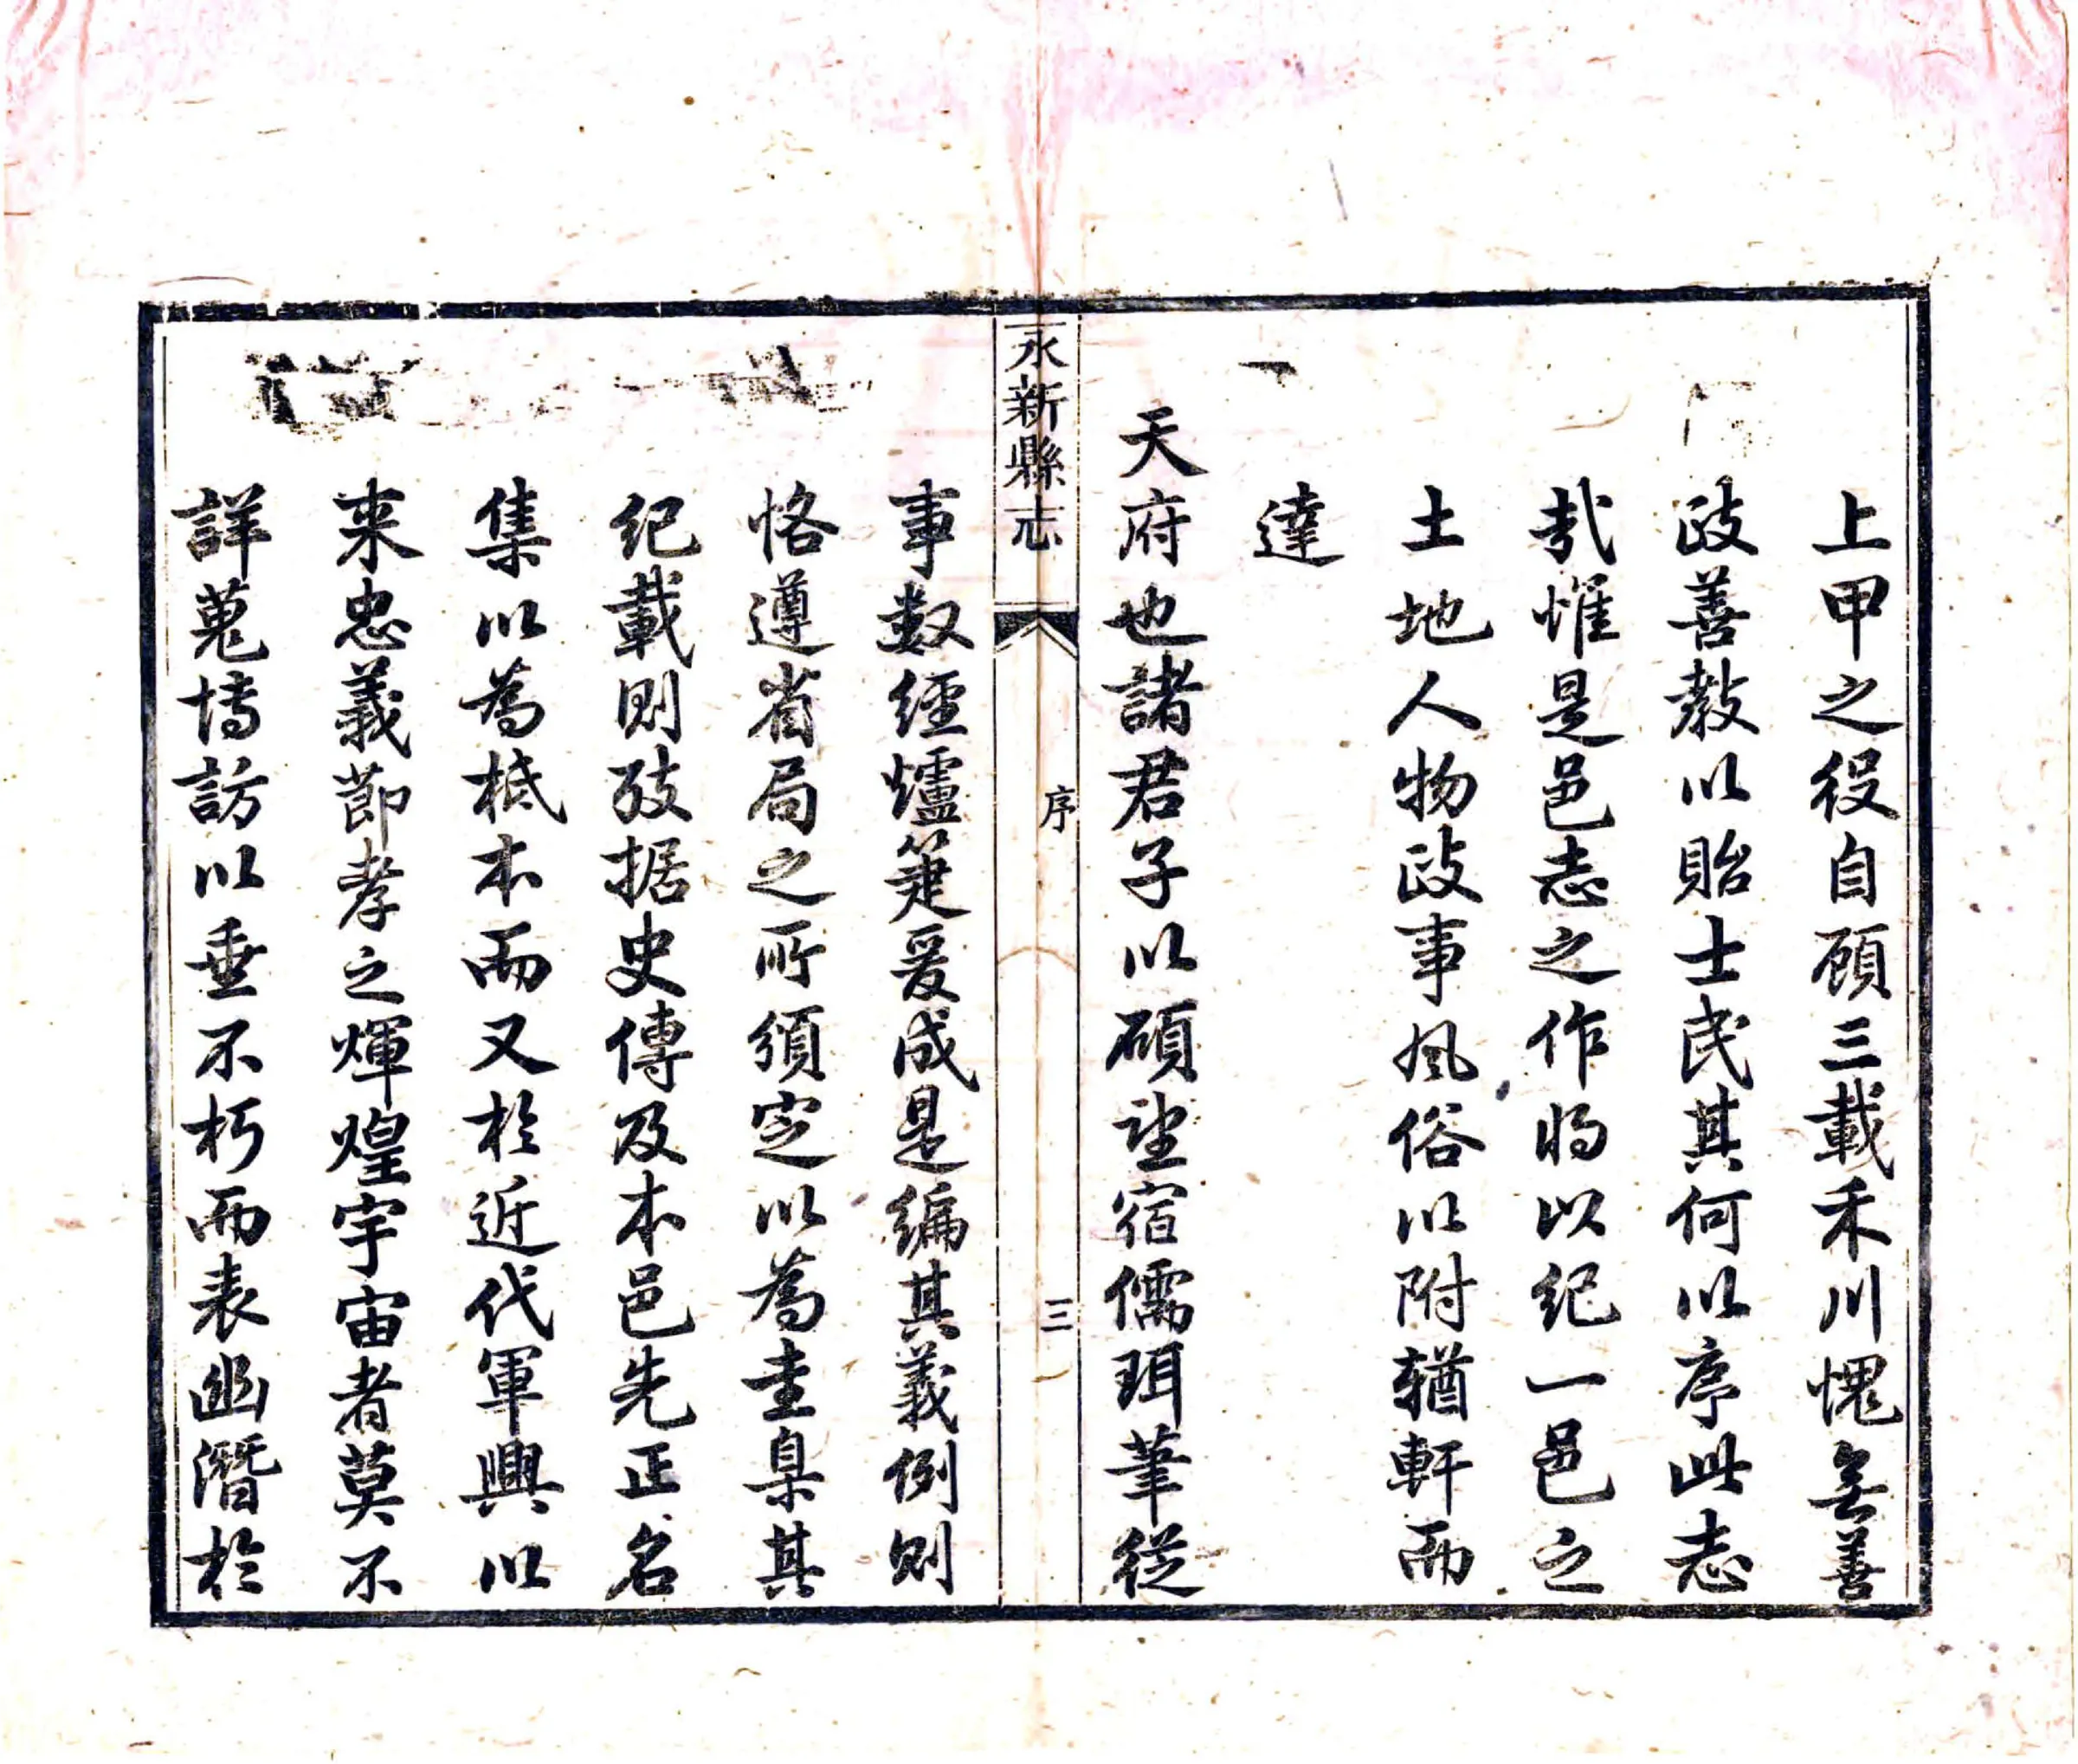 上甲之役自顧三載禾川愧無善
政善教以貽士民其何以序此志
哉惟是邑志之作將以紀一邑之
土地人物政事風俗以附輶軒而
達
天府也諸君子以碩望宿儒珥筆從
永新縣志
序
三
事數經爐箑爰成是編其義例則
恪遵省局之所頒定以為圭臬其
紀載則攷据史傳及本邑先正名
集以為柢本而又於近代軍興以
来忠義節孝之煇煌宇宙者莫不
詳蒐博訪以垂不朽而表幽潛於